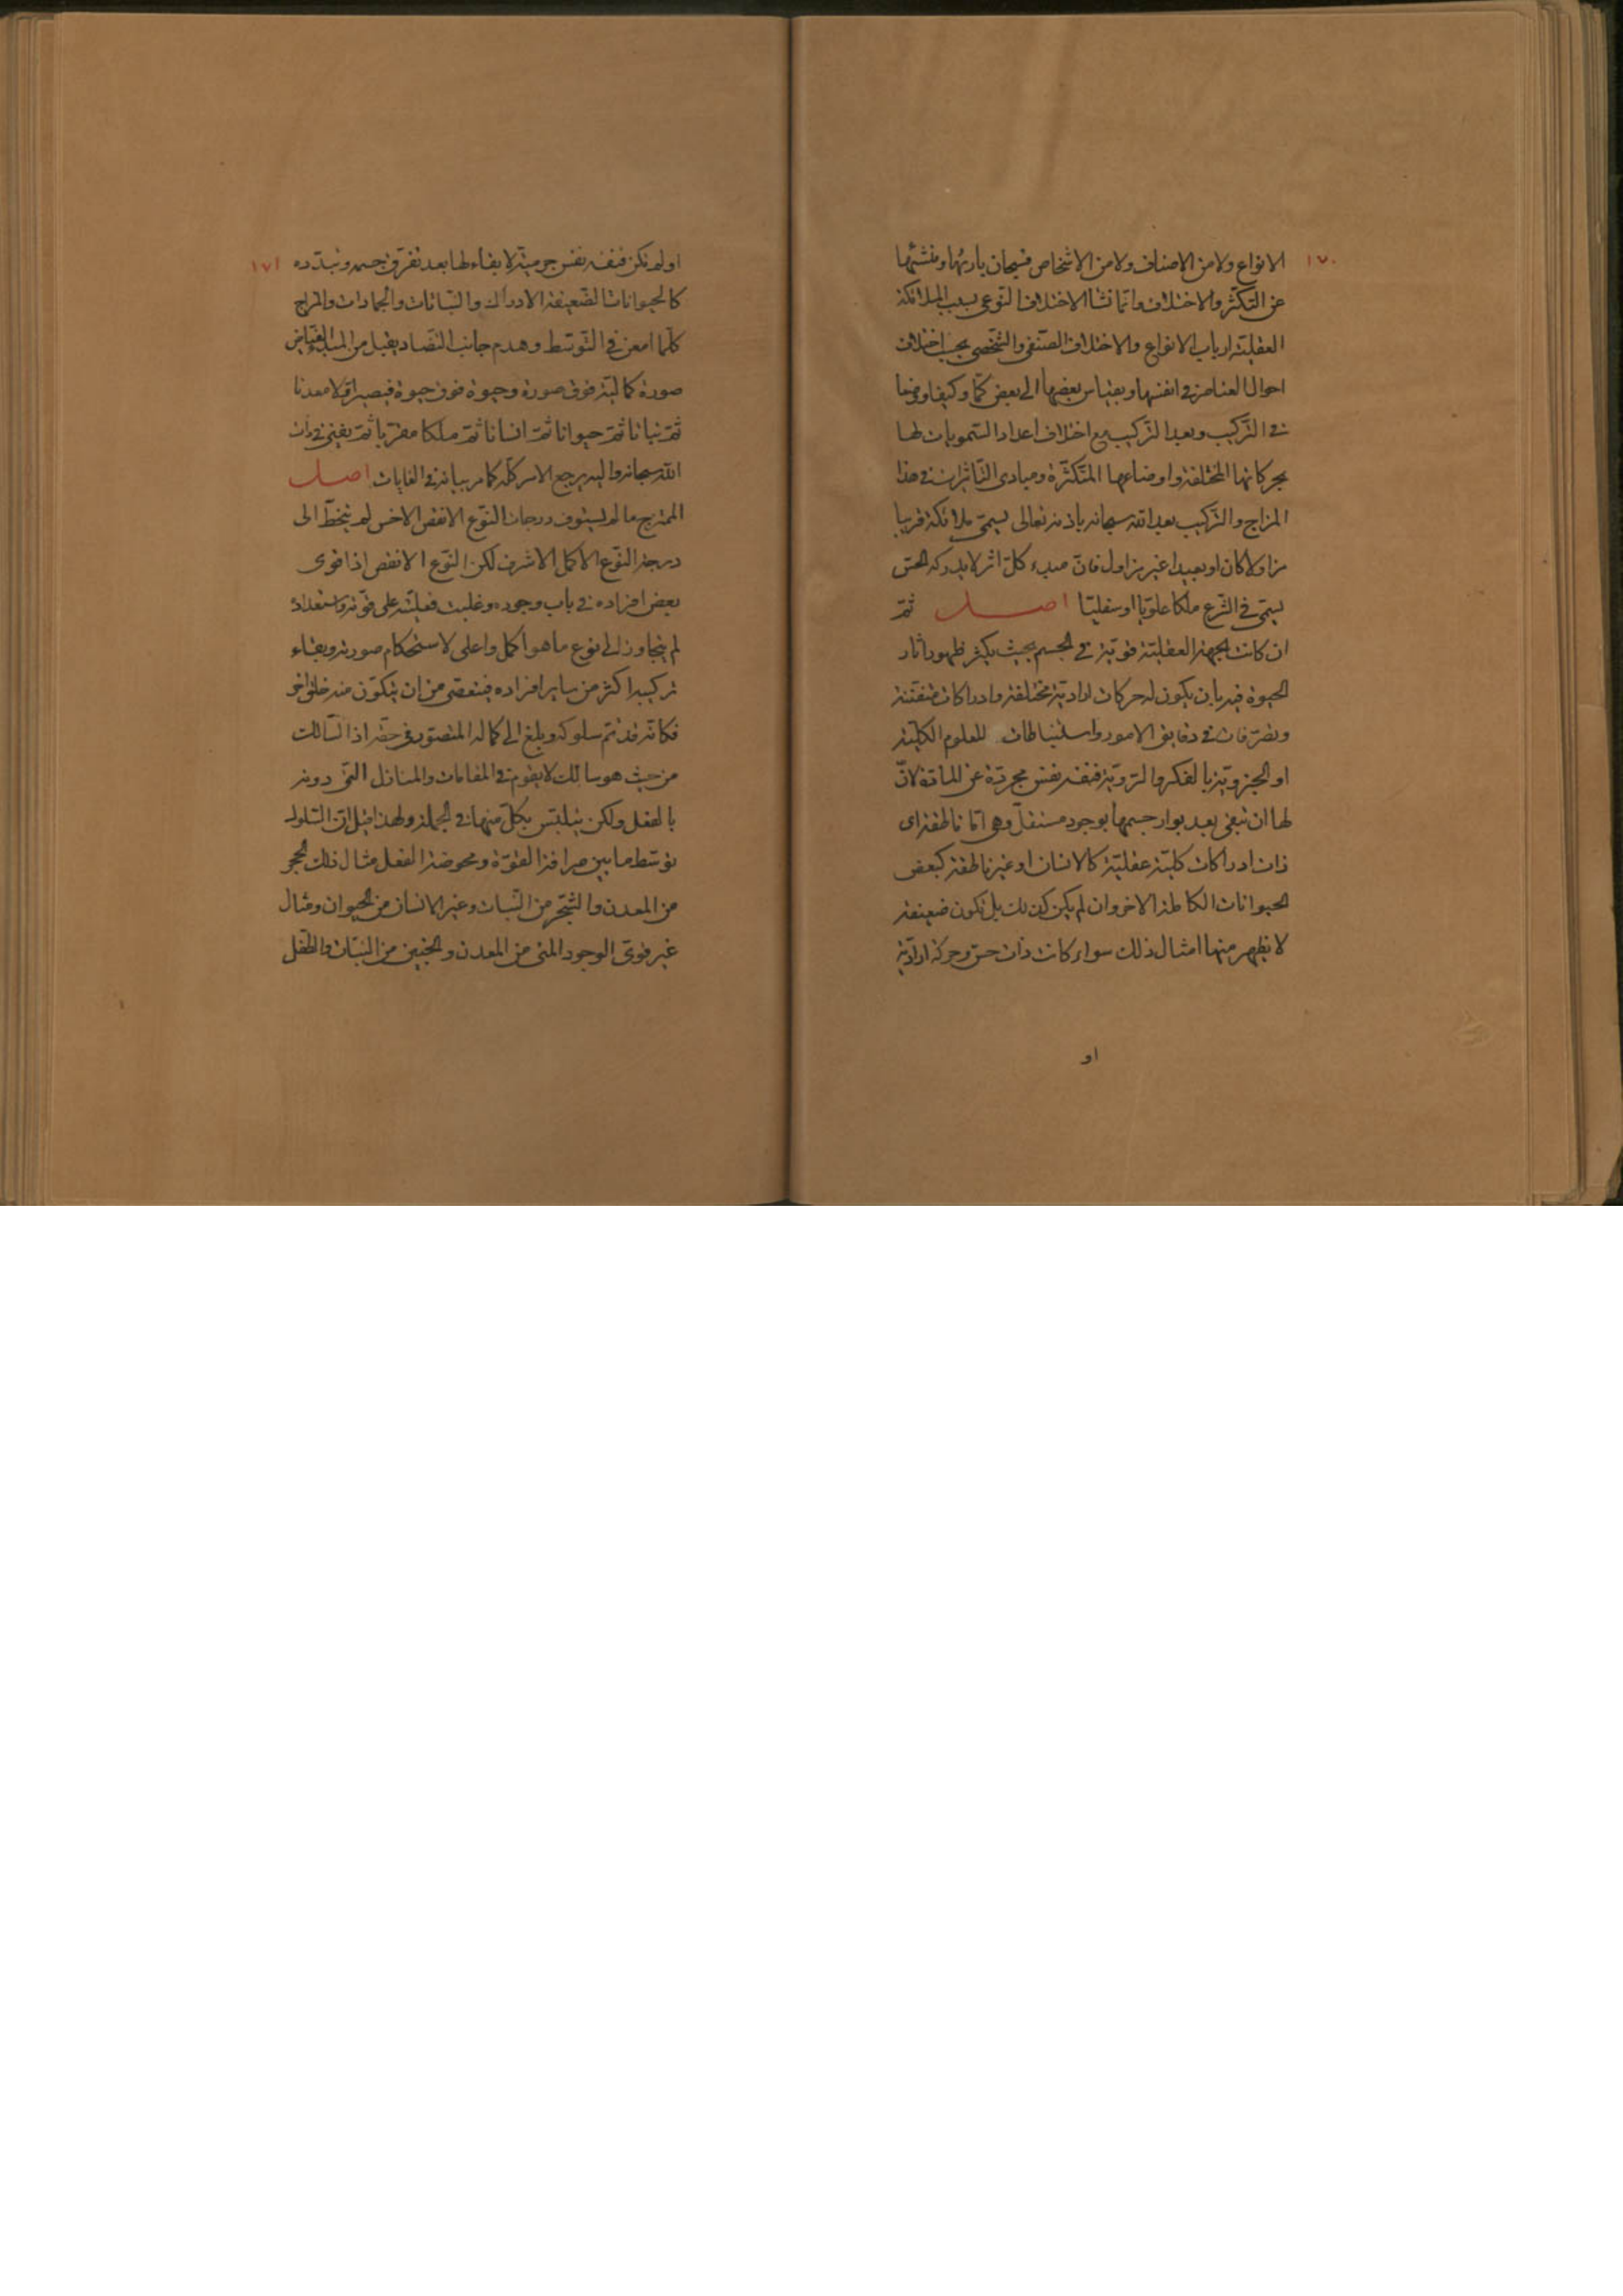 ١٧٠
الانواع ولا من الاصناف ولا من الاشخاص فسبحان بارئها ومنشئها
عن التكثر والاختلاف وانما نشأ الاختلاف النوعى بسبب الملائكة
العقلية ارباب الانواع والاختلاف الصنفى والشخصى بحسب اختلاف
احوال العناصر فى انفسها وبقياس بعضها الى بعض كمّا وكيفا ووضعا
فى التركيب وبعد التركيب مع اختلاف اعداد السمويات لها
بحركاتها المختلفة واوضاعها المتكثرة ومبادى التاثيرات فى هذا
المزاج والتركيب بعد الله سبحانه باذنه تعالى يسمى ملائكة قريبا
مزاولا كان او بعيدا غير مزاول فان مبدء كل اثر لا يدركه الحس
يسمى فى الشرع ملكا علويا او سفليا اصل ثم
ان كانت الجهة العقلية قوية فى الجسم بحيث يكثر ظهور اثار
الحيوة فيه بان يكون له حركات ارادية مختلفة وادراكات متفننة
وتصرفات فى دقايق الامور واستنباطات للعلوم الكلية
او الجزوية بالفكر والتروية فنفسه نفس مجردة عن المادة لان
لها ان تبقى بعد بوار جسمها بوجود مستقل وهى اما ناطقة اى
ذات ادراكات كلية عقلية كالانسان او غير ناطقة كبعض
الحيوانات الكاملة الاخر وان لم يكن كذلك بل تكون ضعيفة
لا يظهر منها امثال ذلك سواء كانت ذات حس وحركة ارادية
او
١٧١
او لم تكن فنفسه نفس جرمية لا بقاء لها بعد تفرق جسمه وتبدّده
كالحيوانات الضعيفة الادراك والنباتات والجمادات والمزاج
كلما امعن فى التوسط وهدم جانب التضاد يقبل من المبدء الفياض
صورة كمالية فوق صورة وحيوة فوق حيوة فيصير اولا معدنا
ثم نباتا ثم حيوانا ثم انسانا ثم ملكا مقربا ثم يفنى فى ذات
الله سبحانه واليه يرجع الامر كله كما مر بيانه فى الغايات اصل
الممتزج ما لم يستوف درجات النوع الانقص الاخس لم يتخط الى
درجة النوع الاكمل الاشرف لكن النوع الانقص اذا قوى
بعض افراده فى باب وجوده وغلبت فعليته على قوته واستعداده
لم يتجاوز الى نوع ما هو اكمل واعلى لاستحكام صورته وبقاء
تركيبه اكثر من ساير افراده فيتعصى من ان يتكون منه خلق اخر
فكانه قد تم سلوكه وبلغ الى كماله المتصور فى حقه اذ السالك
من حيث هو سالك لا يقوم فى المقامات والمنازل التى دونه
بالفعل ولكن يتلبس بكل منها فى الجملة ولهذا قيل ان السلوك
توسط ما بين صرافة القوة ومحوضة الفعل مثال ذلك الحجر
من المعدن والشجر من النبات وغير الانسان من الحيوان ومثال
غير قوى الوجود المنى من المعدن والجنين من النبات والطفل